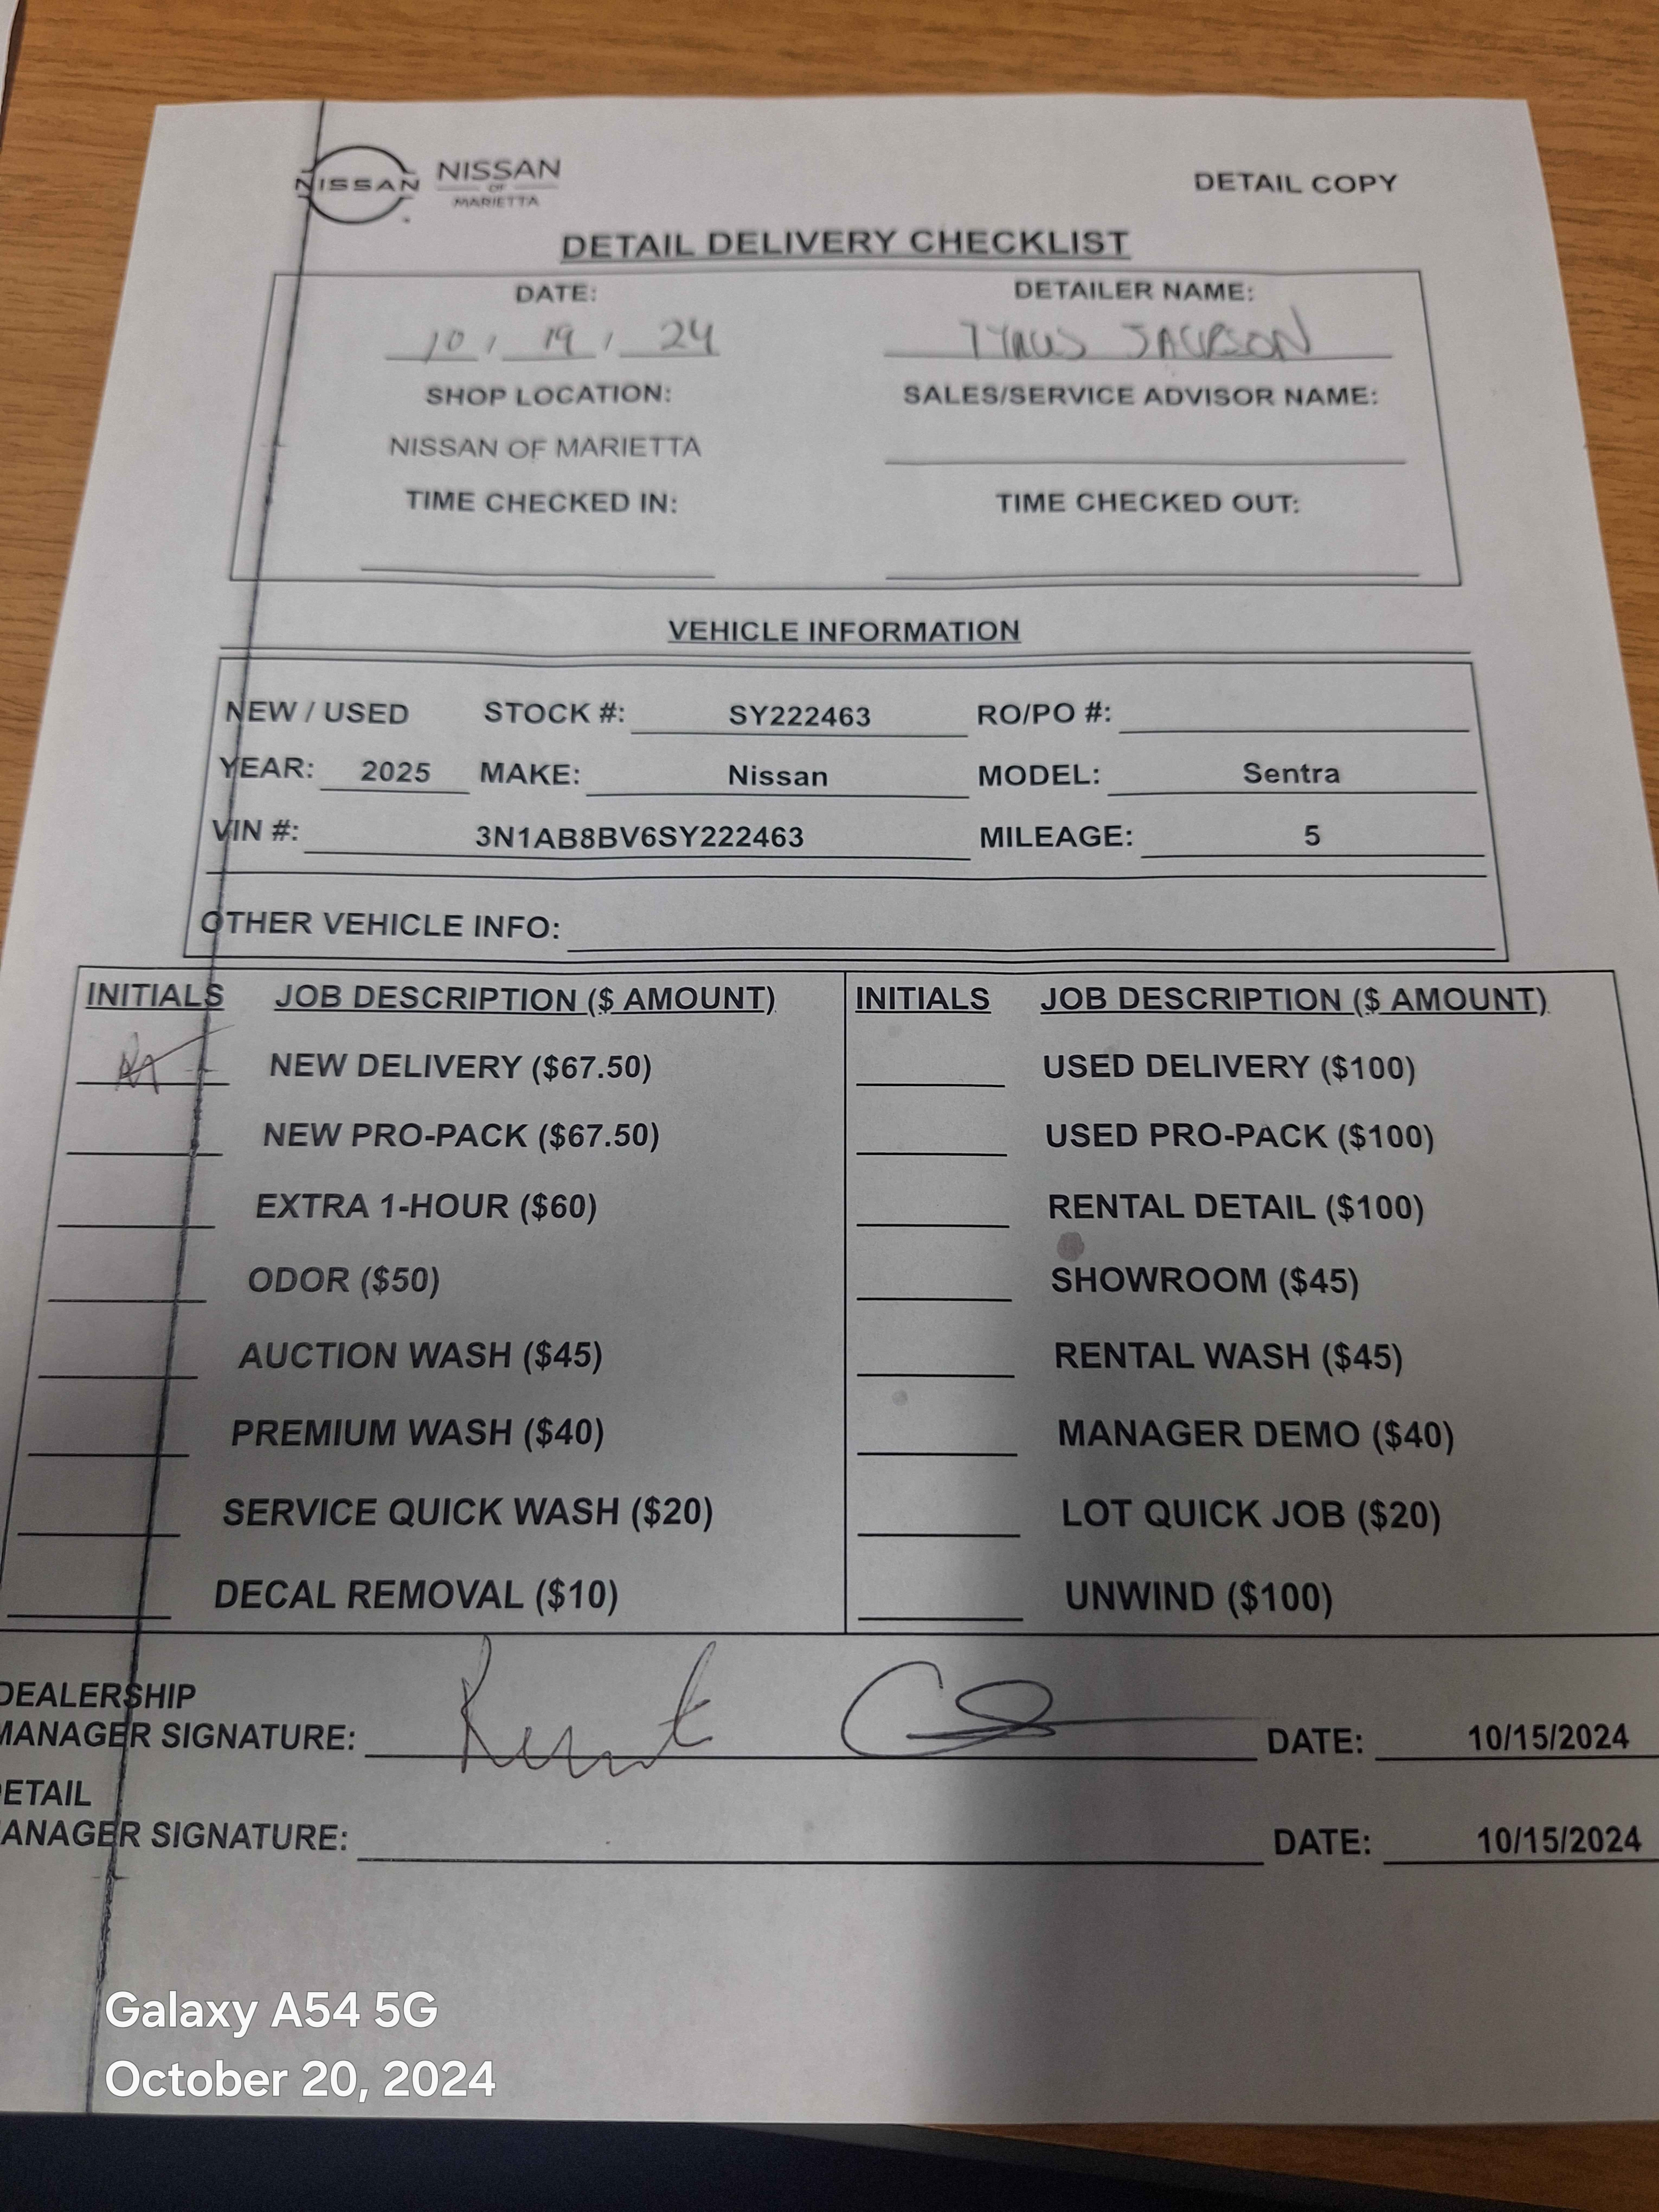 NISSAN NISSAN OF MARIETTA DETAIL COPY
DETAIL DELIVERY CHECKLIST
DATE: DETAILER NAME:
10 / 19 / 24 TYRUS JACKSON
SHOP LOCATION: SALES/SERVICE ADVISOR NAME:
NISSAN OF MARIETTA
TIME CHECKED IN: TIME CHECKED OUT:
VEHICLE INFORMATION
NEW / USED STOCK #: SY222463 RO/PO #:
YEAR: 2025 MAKE: Nissan MODEL: Sentra
VIN #: 3N1AB8BV6SY222463 MILEAGE: 5
OTHER VEHICLE INFO:
INITIALS JOB DESCRIPTION ($ AMOUNT) INITIALS JOB DESCRIPTION ($ AMOUNT)
NEW DELIVERY ($67.50) USED DELIVERY ($100)
NEW PRO-PACK ($67.50) USED PRO-PACK ($100)
EXTRA 1-HOUR ($60) RENTAL DETAIL ($100)
ODOR ($50) SHOWROOM ($45)
AUCTION WASH ($45) RENTAL WASH ($45)
PREMIUM WASH ($40) MANAGER DEMO ($40)
SERVICE QUICK WASH ($20) LOT QUICK JOB ($20)
DECAL REMOVAL ($10) UNWIND ($100)
DEALERSHIP
MANAGER SIGNATURE: DATE: 10/15/2024
ETAIL
ANAGER SIGNATURE: DATE: 10/15/2024
Galaxy A54 5G
October 20, 2024